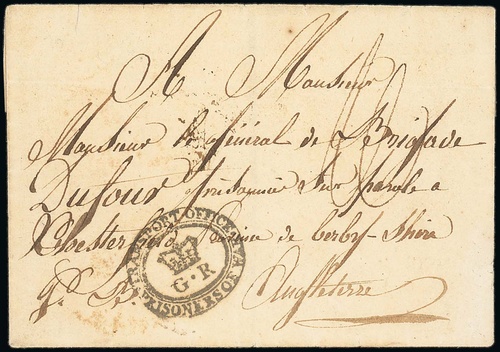 A Monsieur
Monsieur le général de Brigade
Dufour sur parole a
Chesterfield de Derby-Shire
Angleterre
TRANSPORT OFFICE
G·R
PRISONERS OF WAR